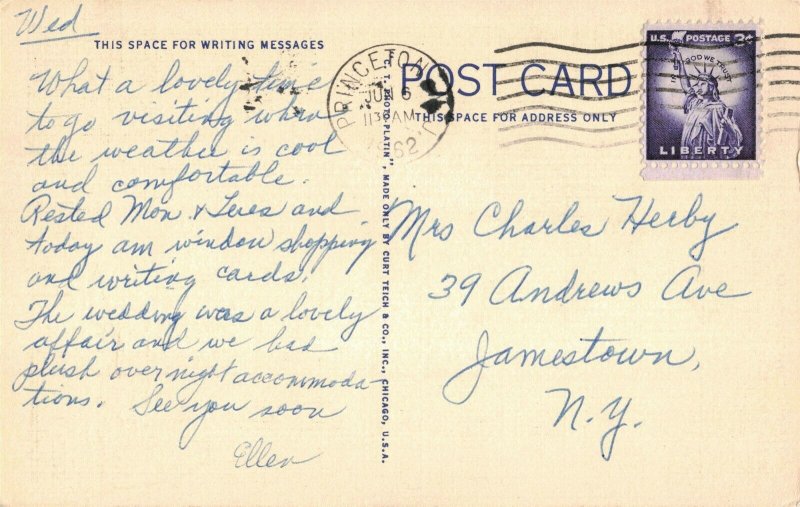 Wed
THIS SPACE FOR WRITING MESSAGES
What a lovely time
to go visiting when
the weather is cool
and comfortable.
Rested Mon & Tues and
today am window shopping
and writing cards.
The wedding was a lovely
affair and we had
plush over night accommoda-
tions. See you soon
Ellen
C. T. PHOTO-PLATIN", MADE ONLY BY CURT TEICH & CO., INC., CHICAGO, U.S.A.
PRINCETON
JUN 6
1130 AM
1962
POST CARD
THIS SPACE FOR ADDRESS ONLY
U.S. POSTAGE 3¢
IN GOD WE TRUST
LIBERTY
Mrs Charles Herby
39 Andrews Ave
Jamestown,
N.Y.